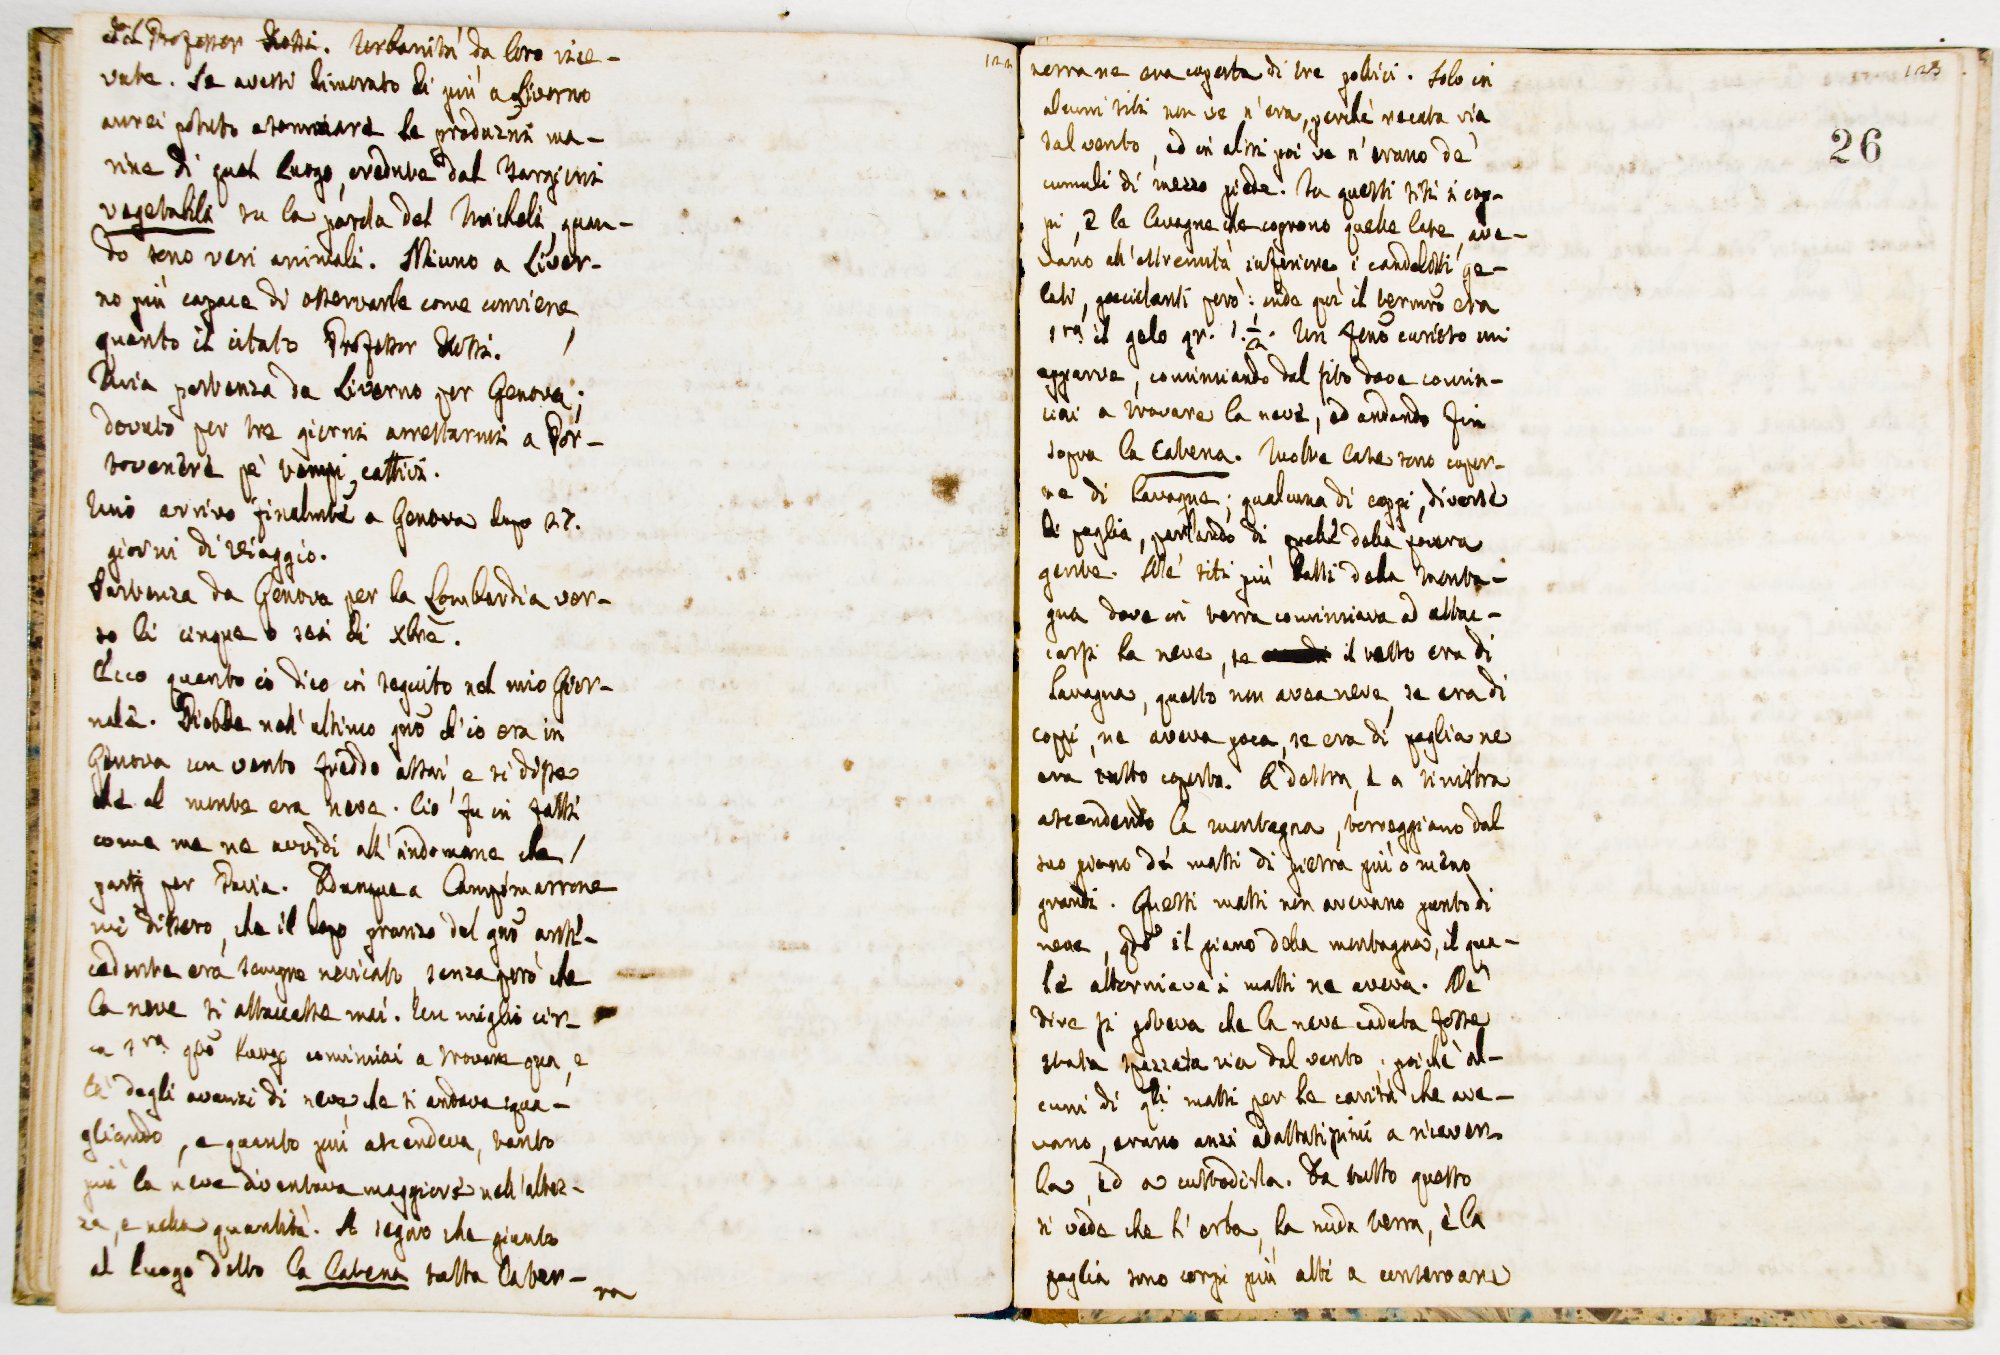 dal Professor Rossi. Urbanità da loro rice-
vute. Se avessi dimorato di più a Livorno
avrei potuto esaminare le produzni ma-
rine di quel luogo, credute dal Targioni
vegetabili su la parola del Micheli, quan-
do sono veri animali. Niuno a Livor-
no più capace di osservarle come conviene
quanto il citato Professor Rossi.
Mia partenza da Livorno per Genova;
dovuto per tre giorni arrestarmi a Por-
tovenere pe' tempi cattivi.
Mio arrivo finalmte a Genova dopo 27.
giorni di viaggio.
Partenza da Genova per la Lombardia ver-
so li cinque o sei di Xbre.
Ecco quanto io dico in seguito nel mio Gior-
nale. Piobbe nell' ultimo gno ch'io era in
Genova un vento freddo assai, e si disse
che al monte era neve. Ciò fu in fatti
come me ne avvidi all' indomane che
partj per Pavia. Adunque a Campomarrone
mi dissero, che il dopo pranzo del gno ante-
cedente era sempre nevicato, senza però che
la neve si attaccasse mai. Un miglio cir-
ca sra. qto luogo cominciai a trovare qua, e
là degli avanzi di neve che si andava squa-
gliando, e quanto più ascendeva, tanto
più la neve diventava maggiore nell' altez-
za, e nella quantità. A segno che giunto
al luogo detto la Catena tutta la ter-
ra
122
123
26
terra ne era coperta di tre pollici. Solo in
alcuni siti non ve n'era, perchè recata via
dal vento, ed in altri poi ve n'erano de'
cumuli di mezzo piede. In questi siti i cop-
pi, e le lavagne che coprono quelle case, ave-
vano all' estremità inferiore i candelotti ge-
lati, gocciolanti però: onde qui il termro era
sra. il gelo gr. 1. 1/2. Un feno curioso mi
apparve, cominciando dal sito dove comin-
ciai a trovare la neve, ed andando fin
sopra la Catena. Molte case sono coper-
te di lavagne; qualcuna di coppi, diverse
di paglia, parlando di quelle della povera
gente. Ne' siti più bassi della monta-
gna dove in terra cominciava ad attac-
carsi la neve, se il tetto era di
lavagna, questo non avea neve, se era di
coppi, ne aveva poca, se era di paglia ne
era tutto coperto. A destra, e a sinistra
ascendendo la montagna, torreggiano dal
suo piano de' massi di pietra più o meno
grandi. Questi massi non avevano punto di
neve, qdo il piano della montagna, il qua-
le attorniava i massi ne aveva. Nè
dire si poteva che la neve caduta fosse
stata spazzata via dal vento; poichè al-
cuni di qli massi per le cavità che ave-
vano, erano anzi adattatissimi a ricever-
la, ed a custodirla. Da tutto questo
si vede che l' erba, la nuda terra, e la
paglia sono corpi più atti a conservare